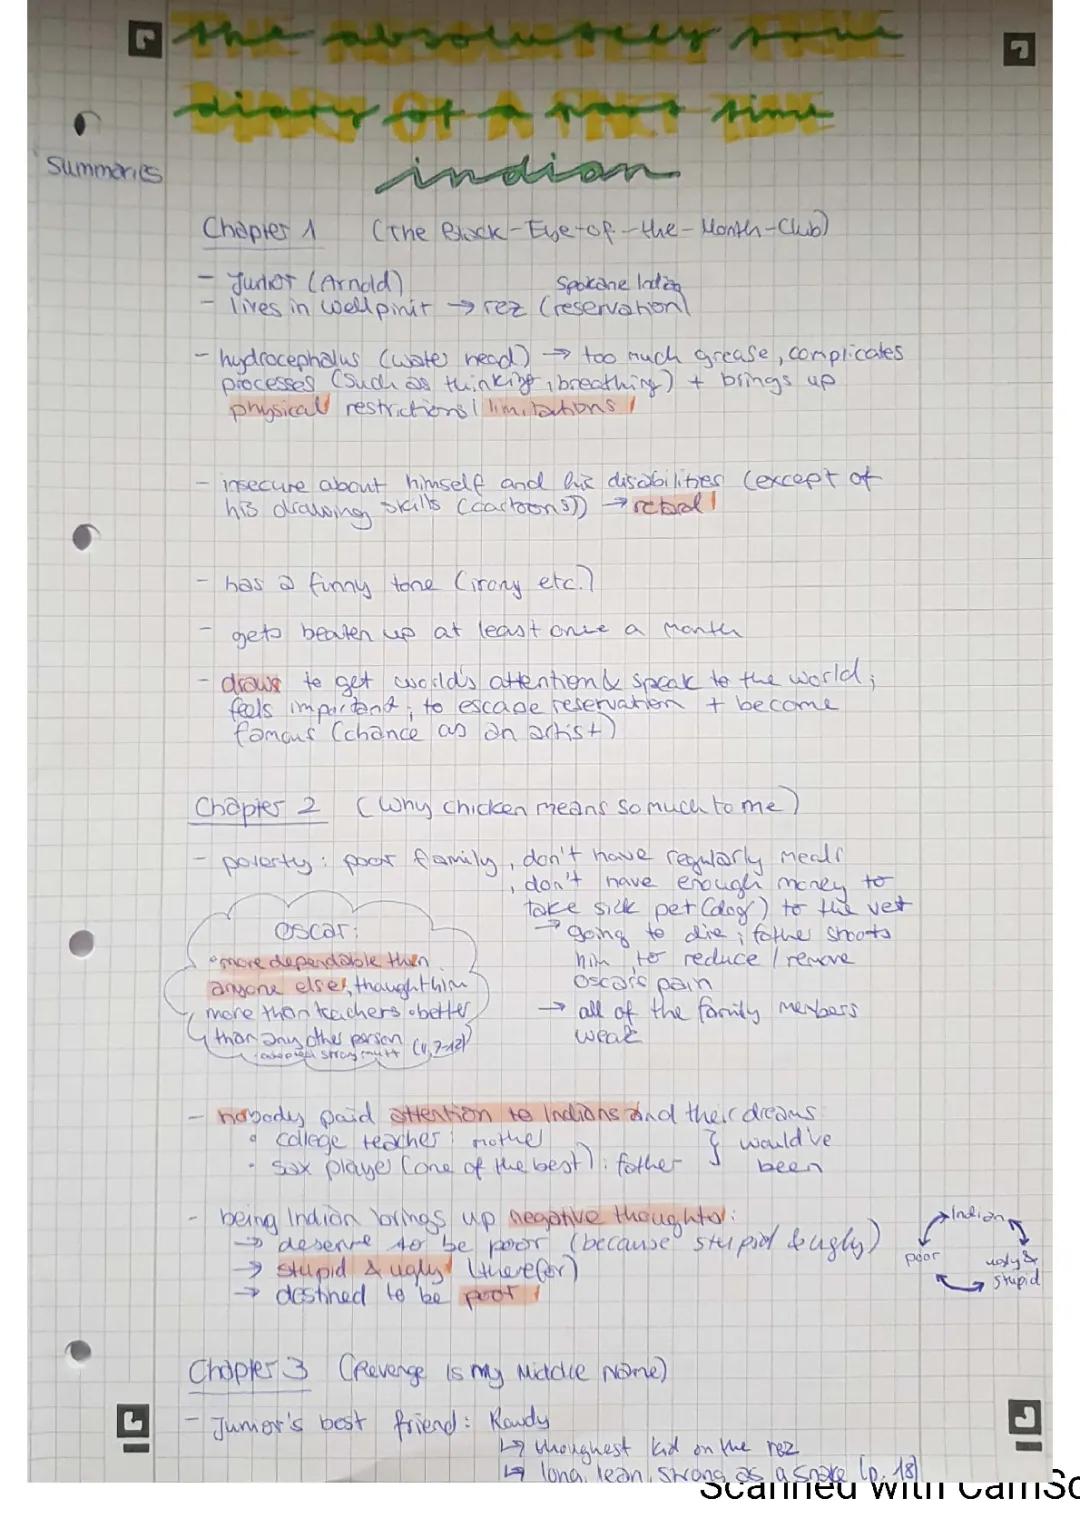 the absolutely true
diary of a part time
indian
Summaries
Chapter 1 (The Black-Eye-of-the-Month-Club)
- Junior (Arnold)
Spokane Indian
- lives in Wellpinit → rez (reservation)
- hydrocephalus (water head) → too much grease, complicates
processes (such as thinking, breathing) + brings up
physical restrictions / limitations
- insecure about himself and his disabilities (except of
his drawing skills (cartoons)) → retard
- has a funny tone (irony etc.)
- gets beaten up at least once a month
- draws to get world's attention & speak to the world;
feels important; to escape reservation + become
famous (chance as an artist)
Chapter 2 (Why chicken means so much to me)
- poverty: poor family, don't have regularly meals
, don't have enough money to
take sick pet (dog) to the vet
→ going to die; father shoots
him to reduce / remove
Oscar's pain
→ all of the family members
weak
Oscar:
• more dependable than
anyone else, thaught him
more than teachers • better
than any other person
adopted stray mutt (4, 7-12)
- nobody paid attention to Indians and their dreams
• college teacher: mother
• sax player (one of the best): father } would've
been
- being Indian brings up negative thoughts:
→ deserve to be poor (because stupid & ugly)
→ stupid & ugly (therefor)
→ destined to be poor
Indian
poor
ugly &
stupid
Chapter 3 (Revenge is my Middle Name)
- Junior's best friend: Rowdy
↳ thoughest kid on the rez
↳ long, lean, strong as a snake (p. 18)
Scanned with CamSc